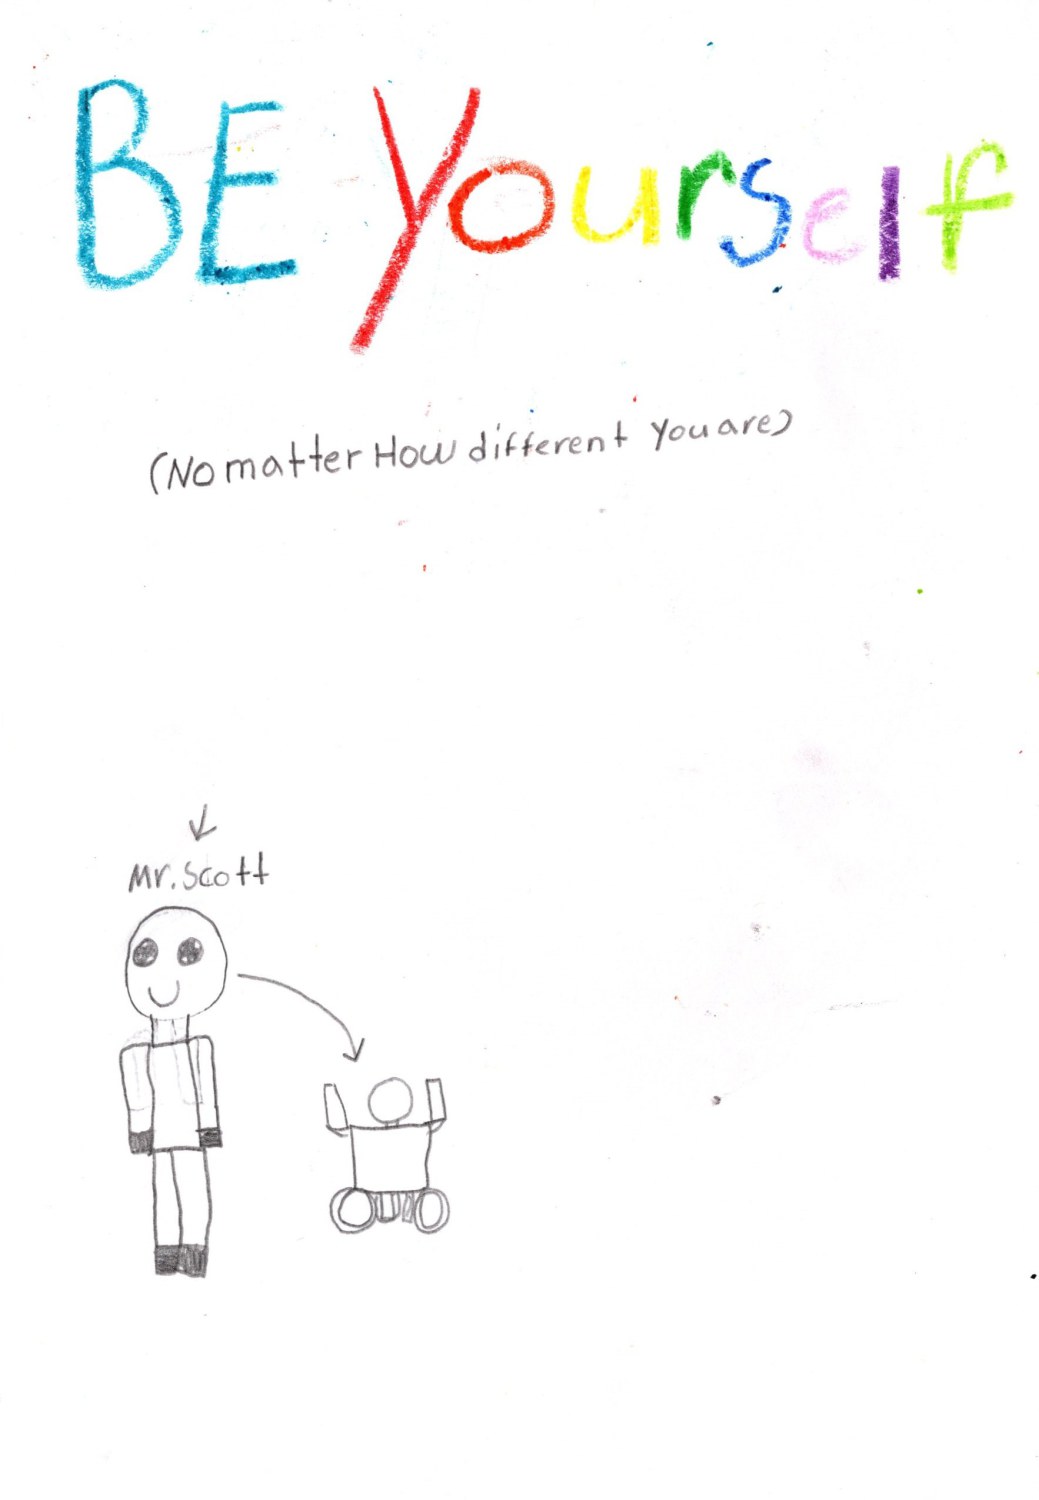 BE Yourself
(No matter How different You are)
Mr. Scott